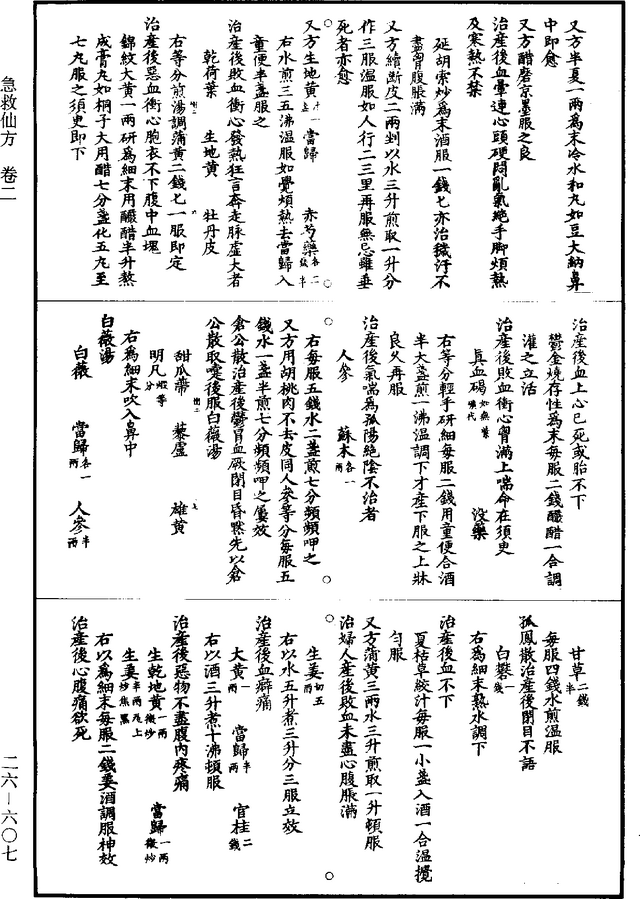 急救仙方　卷二
又方半夏一兩爲末冷水和丸如豆大納鼻
中即愈
又方醋磨京墨服之良
治産後血暈連心頭硬悶亂氣絶手脚煩熱
及寒熱不禁
延胡索炒爲末酒服一錢匕亦治穢汙不
盡腹脹滿
又方續斷皮二兩剉以水三升煎取一升分
作三服温服如人行二三里再服無忌雖垂
死者亦愈
又方生地黄　當歸　赤芍藥
右水煎三五沸温服如覺煩熱去當歸入
童便半盞服之
治産後敗血衝心發熱狂言奔走脉虚大者
乾荷葉　生地黄　牡丹皮
右等分煎湯調蒲黄二錢匕一服即定
治産後惡血衝心胞衣不下腹中血塊
錦紋大黄一兩研爲細末用釅醋半升熬
成膏丸如桐子大用醋七分盞化五丸至
七丸服之須臾即下
治産後血上心已死或胎不下
鬱金燒存性爲末每服二錢釅醋一合調
灌之立活
治産後敗血衝心胷滿上喘命在須臾
真血竭如無紫礦代　没藥
右等分輕手研細每服二錢用童便合酒
半大盞煎一沸温調下才産下服之上牀
良久再服
治産後氣喘爲孤陽絶陰不治者
人參　蘇木各一兩
右每服五錢水二盞煎七分頻頻呷之
又方用胡桃肉不去皮同人參等分每服五
錢水一盞半煎七分頻頻呷之屢效
倉公散治産後鬱冒血厥閉目昏默先以倉
公散取嚏後服白薇湯
甜瓜蒂　藜蘆　雄黄
明凡煅等分
右爲細末吹入鼻中
白薇湯
白薇　當歸各一兩　人參半兩
甘草二錢半
每服四錢水煎温服
孤鳳散治産後閉目不語
白礬一錢
右爲細末熱水調下
治産後血不下
夏枯草絞汁每服一小盞入酒一合温攪
勻服
又方蒲黄三兩水三升煎取一升頓服
治婦人産後敗血未盡心腹脹滿
生薑切五兩
右以水五升煮三升分三服立效
治産後血癖痛
大黄一兩　當歸半兩　官桂二錢
右以酒三升煮十沸頓服
治産後惡物不盡腹内疼痛
生乾地黄一兩微炒　當歸一兩微炒
生薑半兩瓦上炒焦黑
右以爲細末每服二錢薑酒調服神效
治産後心腹痛欲死
二六—六〇七